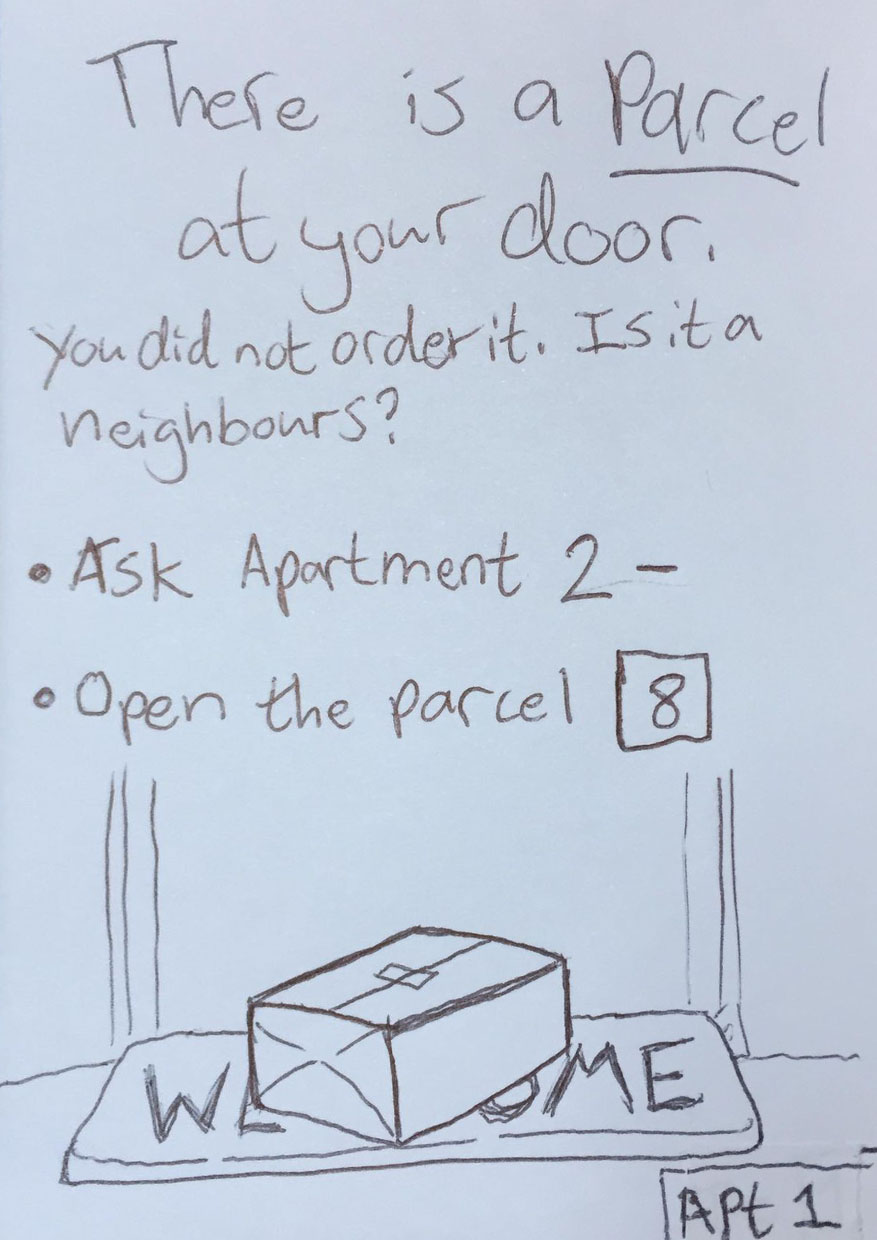 There is a Parcel
at your door.
You did not order it. Is it a
neighbours?
• Ask Apartment 2 –
• Open the parcel 8
WE OME
Apt 1